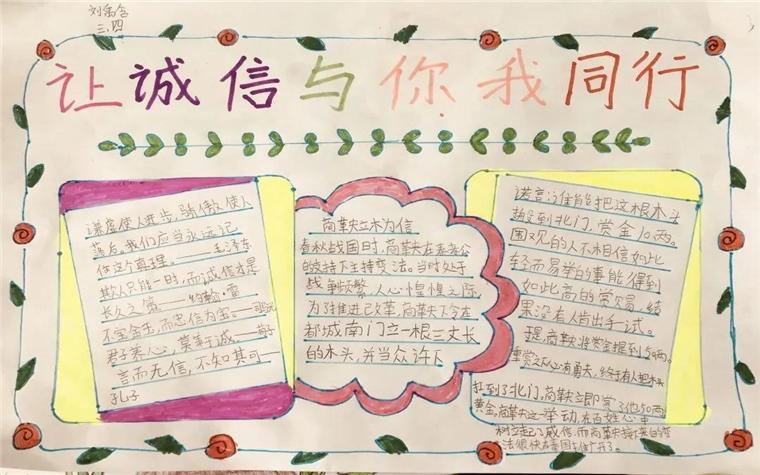 刘禹含
三.四
让诚信与你我同行
谦虚使人进步,骄傲使人
落后。我们应当永远记
住这个真理。——毛泽东
欺人只能一时,而诚信才是
长久之策——约翰·雷
不宝金玉,而忠信为宝。
君子养心,莫善于诚。——荀子
言而无信,不知其可——
孔子
商鞅立木为信
春秋战国时,商鞅在秦孝公
的支持下主持变法。当时处于
战争频繁、人心惶惶之际,
为了推进改革,商鞅下令在
都城南门立一根三丈长
的木头,并当众许下
诺言:谁能把这根木头
搬到北门,赏金10两。
围观的人不相信如此
轻而易举的事能得到
如此高的赏,结
果没有人肯出手一试。
商鞅将赏金提到50两。
重赏之下必有勇夫,终于有人把木头
扛到了北门。商鞅立即赏了他50两
黄金。商鞅这一举动,在百姓心中
树立起了威信,而商鞅接下来的变
法很快在秦国推广开了。